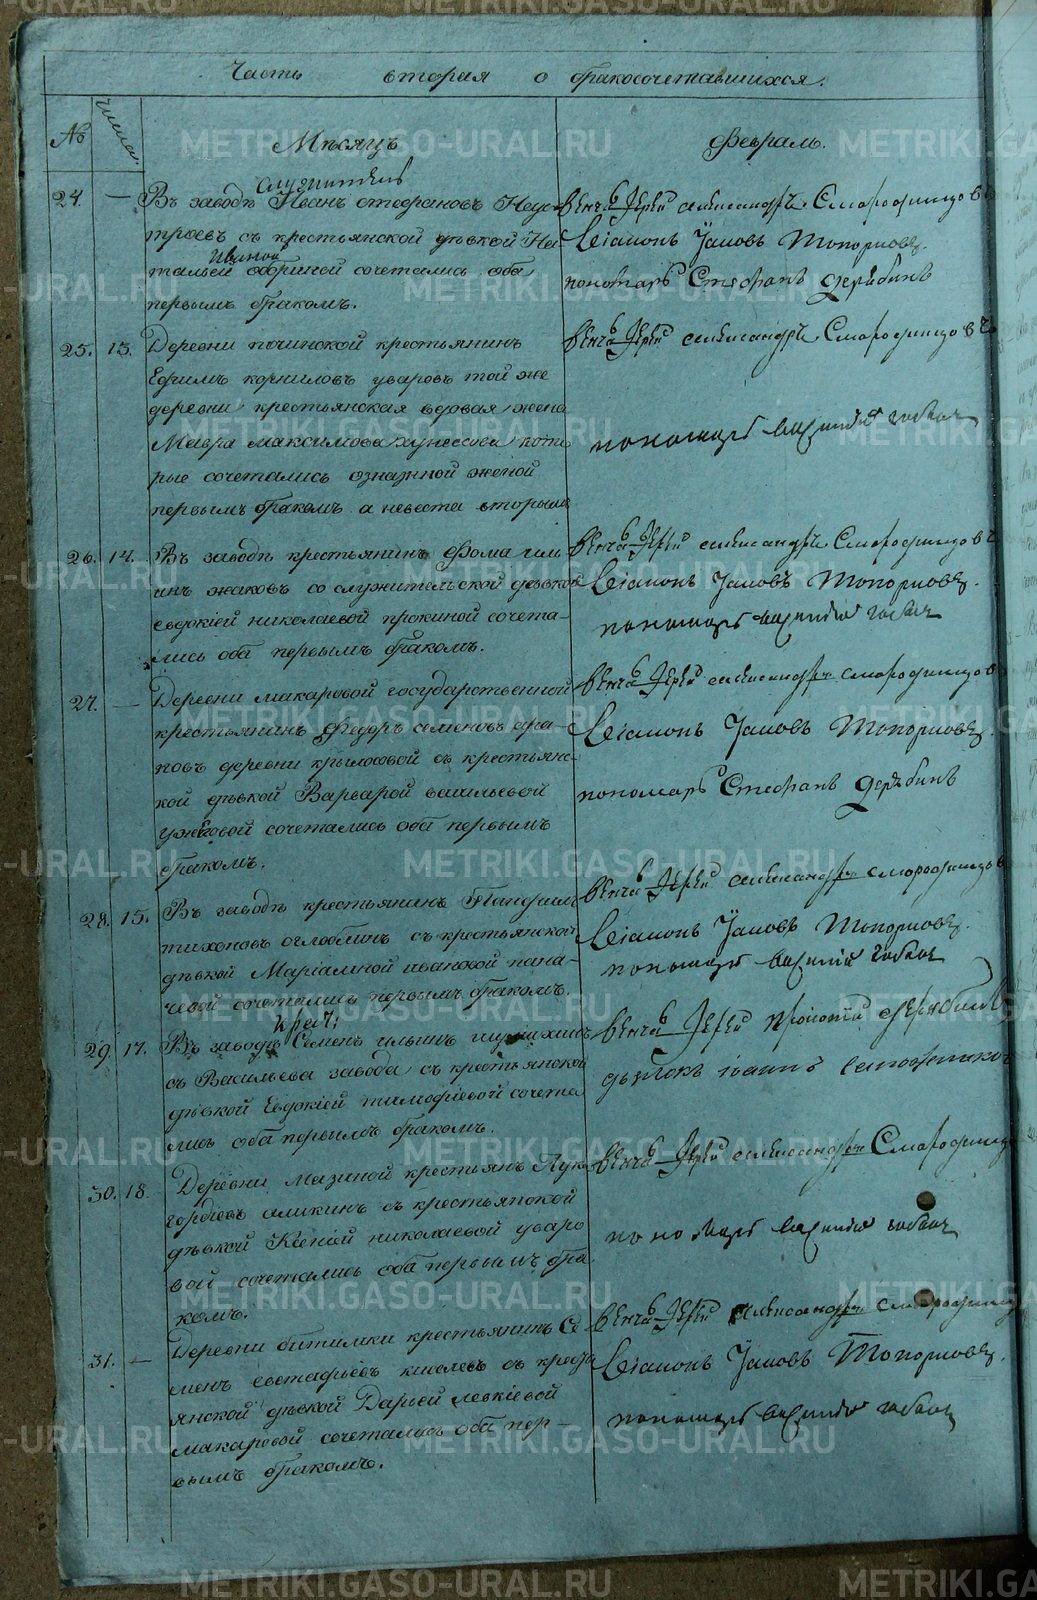 Часть вторая о бракосочетавшихся.
№ Числа. Мѣсяцъ Февраль.
24. — Въ заводѣ служитель Иванъ Стефановъ Неус-
троевъ съ крестьянской дѣвкой На-
тальей Ивановой сочетались оба
первымъ бракомъ.
Вѣнча. Іерей Александръ Смородинцовъ
Діаконъ Іаковъ Топорковъ.
пономарь Стефанъ Дерябинъ
25. 13. Деревни починской крестьянинъ
Ефимъ корниловъ уваровъ той же
деревни крестьянская вдовая жена
Мавра максимова кото-
рые сочетались женой
первымъ бракомъ а невеста вторымъ
Вѣнча. Іерей Александръ Смородинцовъ
пономарь
26. 14. Въ заводѣ крестьянинъ Фома иль-
инъ жаковъ со служительской дѣвкой
евдокіей николаевой сочета-
лись оба первымъ бракомъ.
Вѣнча. Іерей Александръ Смородинцовъ
Діаконъ Іаковъ Топорковъ.
пономарь
27. — Деревни макаровой государственной
крестьянинъ Федоръ семеновъ
деревни крылосовой съ крестьянс-
кой дѣвкой Варварой васильевой
сочетались оба первымъ
бракомъ.
Вѣнча. Іерей Александръ Смородинцовъ
Діаконъ Іаковъ Топорковъ.
пономарь Стефанъ Дерябинъ
28. 15. Въ заводѣ крестьянинъ Панфилъ
тихоновъ оглоблинъ съ крестьянской
дѣвкой Маріамной ивановой пана-
чевой сочетались первымъ бракомъ.
Вѣнча. Іерей Александръ Смородинцовъ
Діаконъ Іаковъ Топорковъ.
пономарь
29. 17. Въ заводѣ крест: Семенъ ильинъ
съ Васильева завода съ крестьянской
дѣвкой Евдокіей тимофіевой сочета-
лись оба первымъ бракомъ.
Вѣнча. Іерей Дерябинъ
дьячокъ іоаннъ
30. 18. Деревни мазиной крестьянъ Лука
гордѣевъ аликинъ съ крестьянской
дѣвкой Ксеніей николаевой уваро-
вой сочетались оба первымъ бра-
комъ.
Вѣнча. Іерей Александръ Смородинцовъ
пономарь
31. — Деревни битимки крестьянинъ Се-
менъ евстафьевъ киселевъ съ кресть-
янской дѣвкой Дарьей левкіевой
макаровой сочетались оба пер-
вымъ бракомъ.
Вѣнча. Іерей Александръ Смородинцовъ
Діаконъ Іаковъ Топорковъ.
пономарь
METRIKI.GASO-URAL.RU